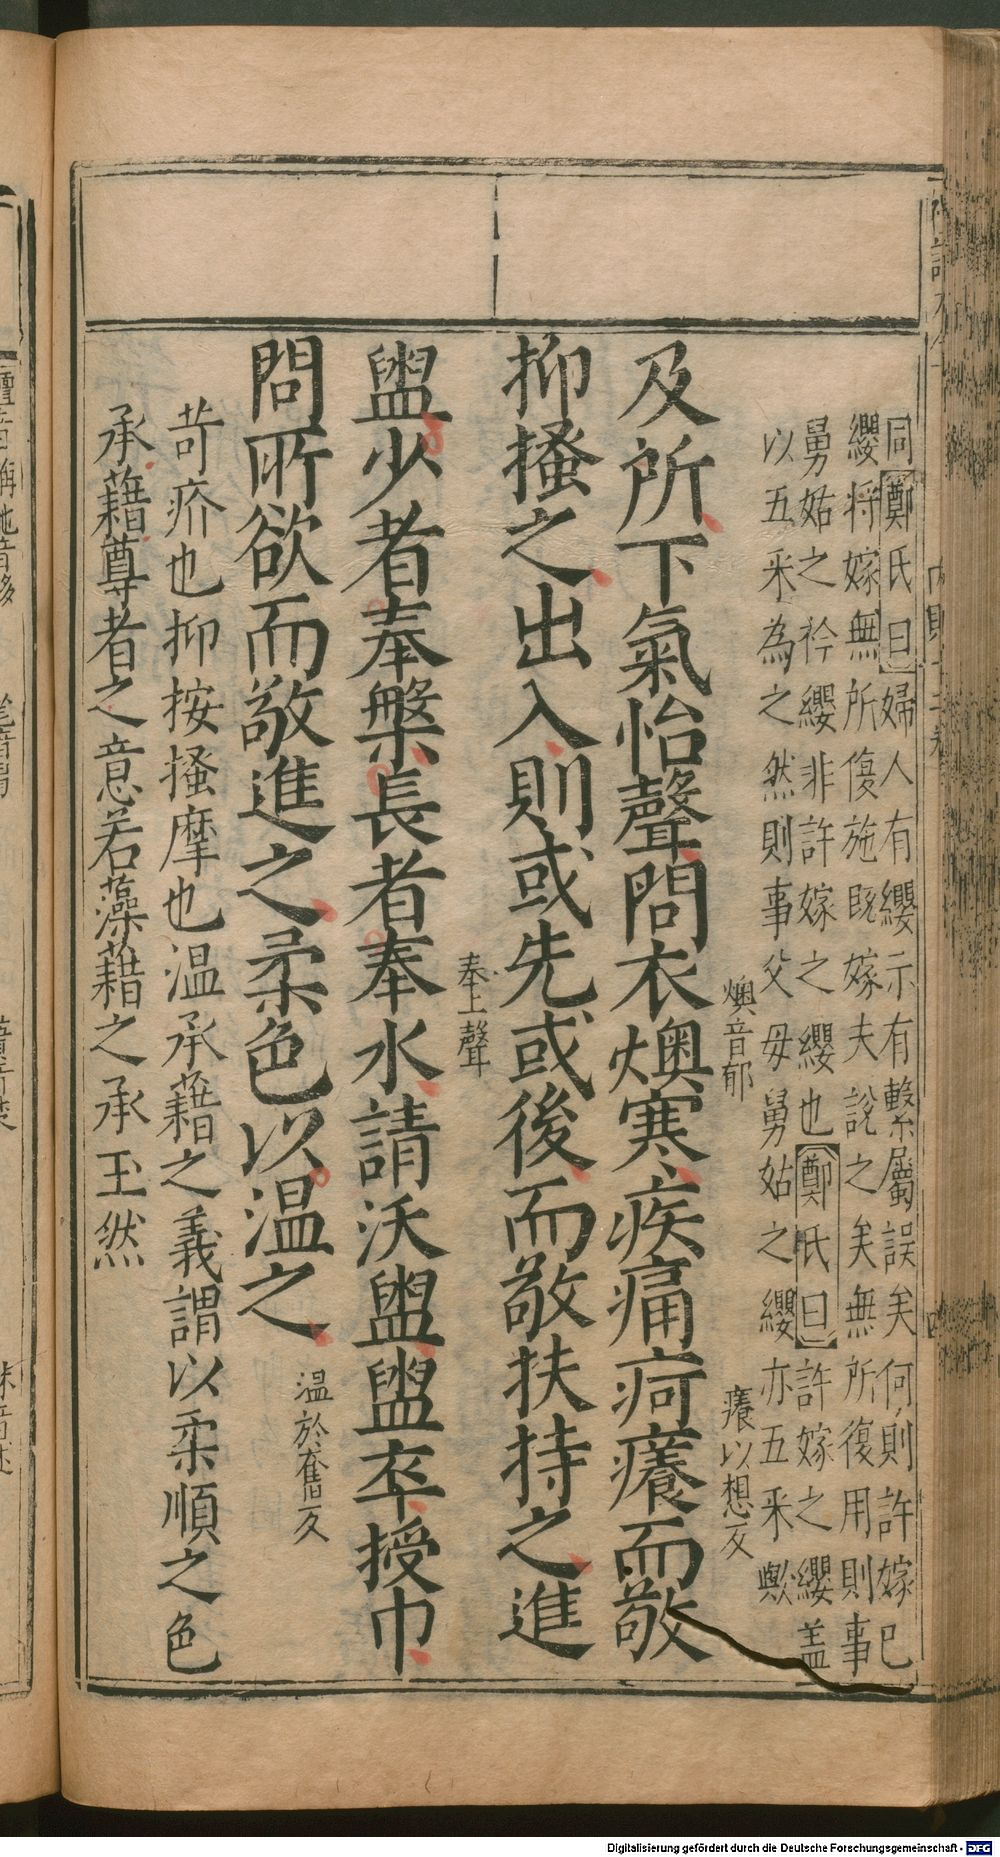 同鄭氏曰婦人有纓示有繫屬誤矣何則許嫁已
纓將嫁無所復施旣嫁夫說之矣無所復用則事
舅姑之衿纓非許嫁之纓也鄭氏曰許嫁之纓蓋
以五采為之然則事父母舅姑之纓亦五采歟
燠音郁
癢以想反
及所下氣怡聲問衣燠寒疾痛疴癢而敬
抑搔之出入則或先或後而敬扶持之進
奉上聲
盥少者奉槃長者奉水請沃盥盥卒授巾
問所欲而敬進之柔色以温之
温於奮反
苛疥也抑按搔摩也温承藉之義謂以柔順之色
承藉尊者之意若藻藉之承玉然
Digitalisierung gefördert durch die Deutsche Forschungsgemeinschaft - DFG